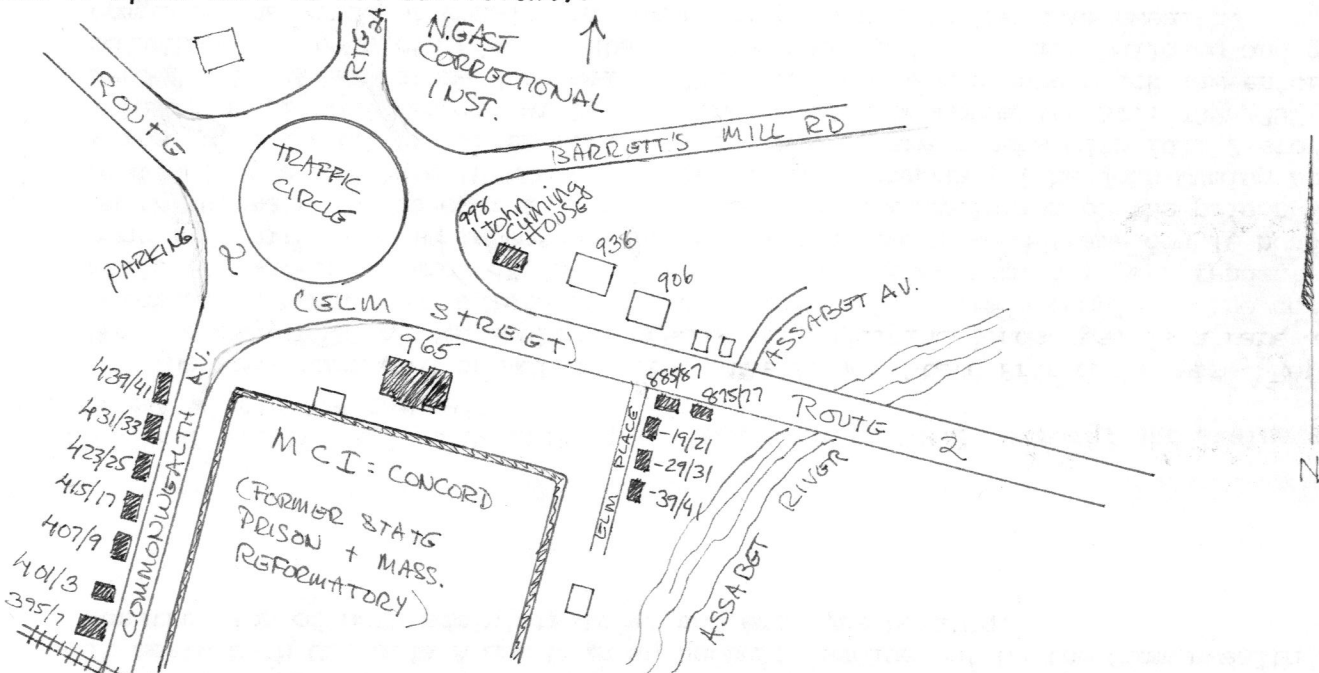 RTE 2A
N.EAST
CORRECTIONAL
INST.
ROUTE
2
TRAFFIC
CIRCLE
BARRETT'S MILL RD
PARKING
998
John
Cuming
House
936
906
ASSABET AV.
(ELM STREET)
965
885/87
875/77
ROUTE 2
ELM PLACE
-19/21
-29/31
-39/41
ASSABET RIVER
439/41
431/33
423/25
415/17
407/9
401/3
395/7
COMMONWEALTH AV.
MCI: CONCORD
(FORMER STATE
PRISON + MASS.
REFORMATORY)
N